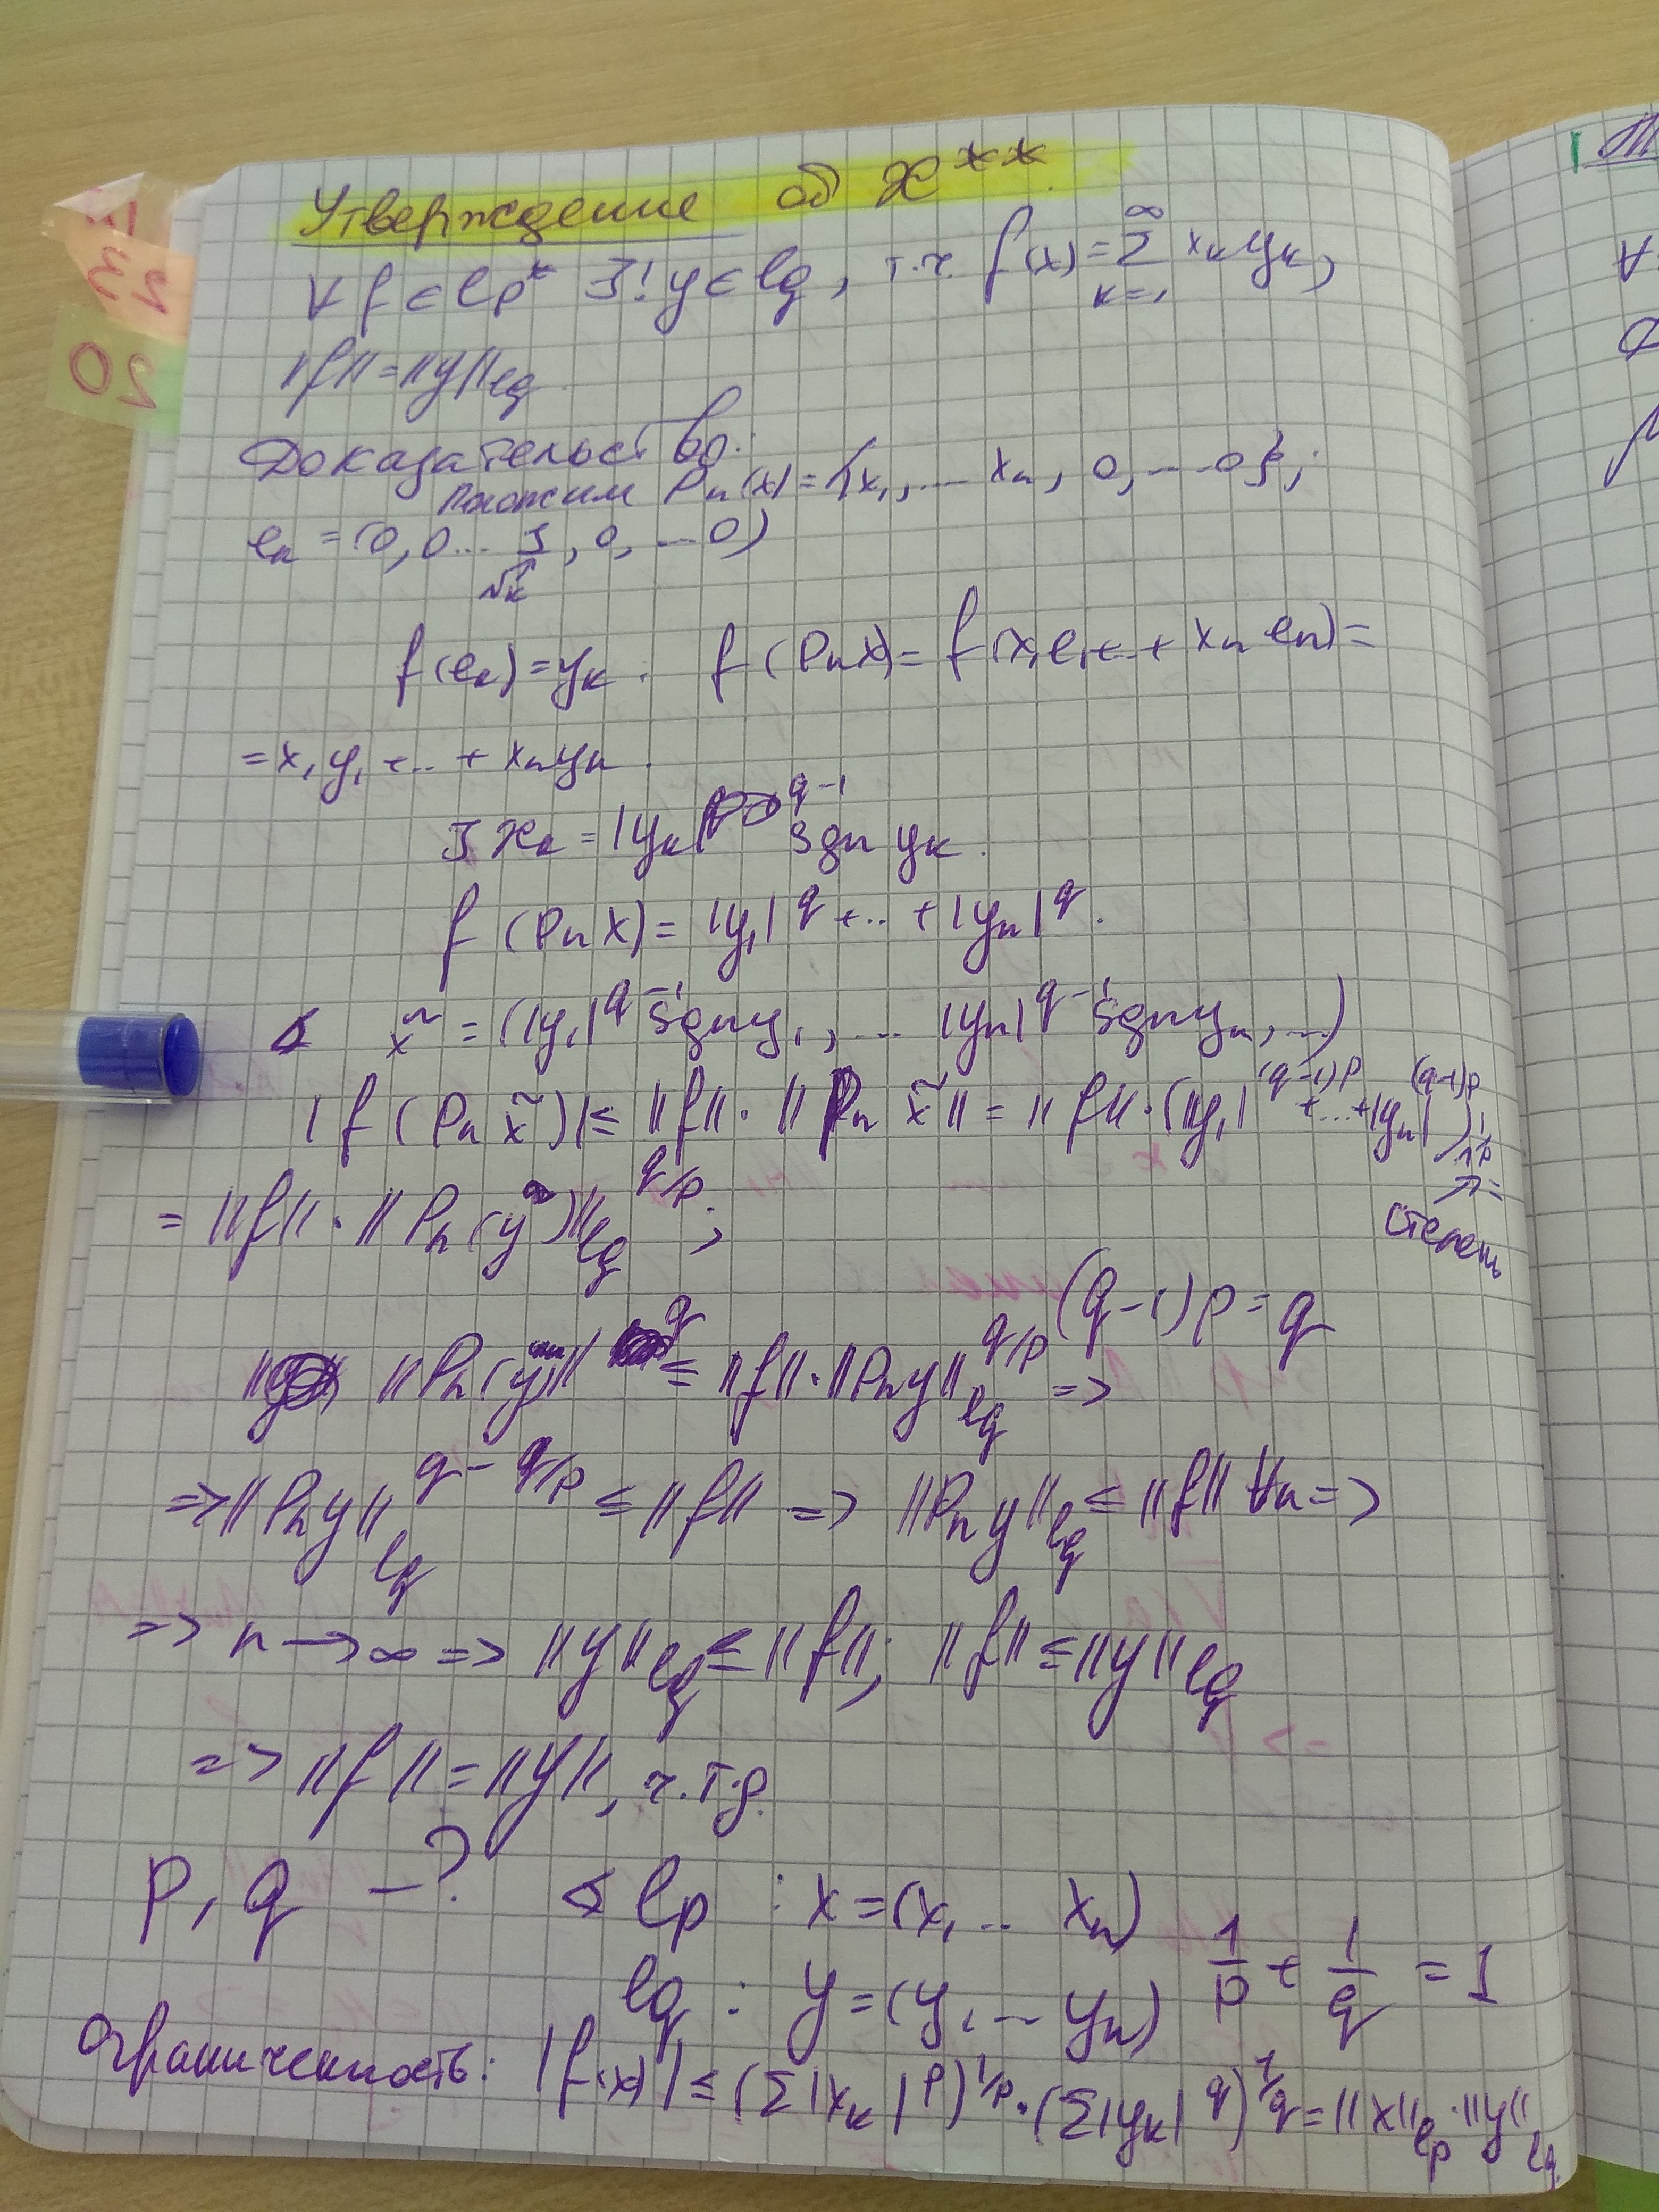 Утверждение об X**
∀ f ∈ lp* ∃! y ∈ lq, т.ч. f(x) = ∞Σk=1 xk yk,
||f|| = ||y||lq.
Доказательство:
Положим Pn(x) = {x1, ... xn, 0, ... 0};
ek = (0, 0 ... 1, 0, ... 0)
↗ k
f(ek) = yk. f(Pn x) = f(x1e1 + ... + xn en) =
= x1 y1 + ... + xn yn.
] xk = |yk|^(q-1) sgn yk.
f(Pn x) = |y1|^q + ... + |yn|^q.
x̃ = (|y1|^(q-1) sgn y1, ... |yn|^(q-1) sgn yn, ...)
|f(Pn x̃)| ≤ ||f|| · ||Pn x̃|| = ||f|| · (|y1|^((q-1)p) + ... + |yn|^((q-1)p))^(1/p) =
степень
= ||f|| · ||Pn(y)||lq^(q/p);
(q-1)p = q
||Pn(y)||^q ≤ ||f|| · ||Pn y||lq^(q/p) =>
=> ||Pn y||lq^(q - q/p) ≤ ||f|| => ||Pn y||lq ≤ ||f|| ∀n =>
=> n → ∞ => ||y||lq ≤ ||f||; ||f|| ≤ ||y||lq
=> ||f|| = ||y||, ч.т.д.
p, q - ? lp : x = (x1 ... xn)
lq : y = (y1 ... yn) 1/p + 1/q = 1
Ограниченность: |f(x)| ≤ (Σ|xk|^p)^(1/p) · (Σ|yk|^q)^(1/q) = ||x||lp · ||y||lq.
20